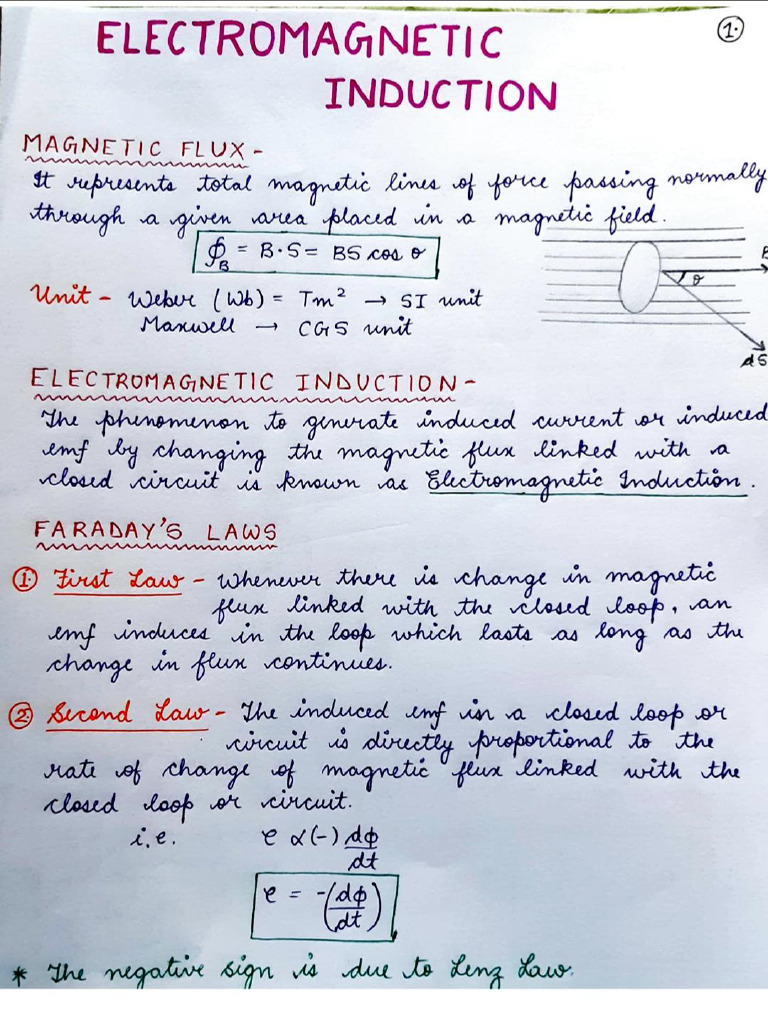 1.
ELECTROMAGNETIC
INDUCTION
MAGNETIC FLUX -
It represents total magnetic lines of force passing normally
through a given area placed in a magnetic field.
ϕ_B = B·S = BS cos θ
B
θ
dS
Unit - Weber (Wb) = Tm² → SI unit
Maxwell → CGS unit
ELECTROMAGNETIC INDUCTION -
The phenomenon to generate induced current or induced
emf by changing the magnetic flux linked with a
closed circuit is known as Electromagnetic Induction.
FARADAY'S LAWS
① First Law - Whenever there is change in magnetic
flux linked with the closed loop, an
emf induces in the loop which lasts as long as the
change in flux continues.
② Second Law - The induced emf in a closed loop or
circuit is directly proportional to the
rate of change of magnetic flux linked with the
closed loop or circuit.
i.e. e ∝ (-) dϕ/dt
e = -(dϕ/dt)
* The negative sign is due to Lenz Law.